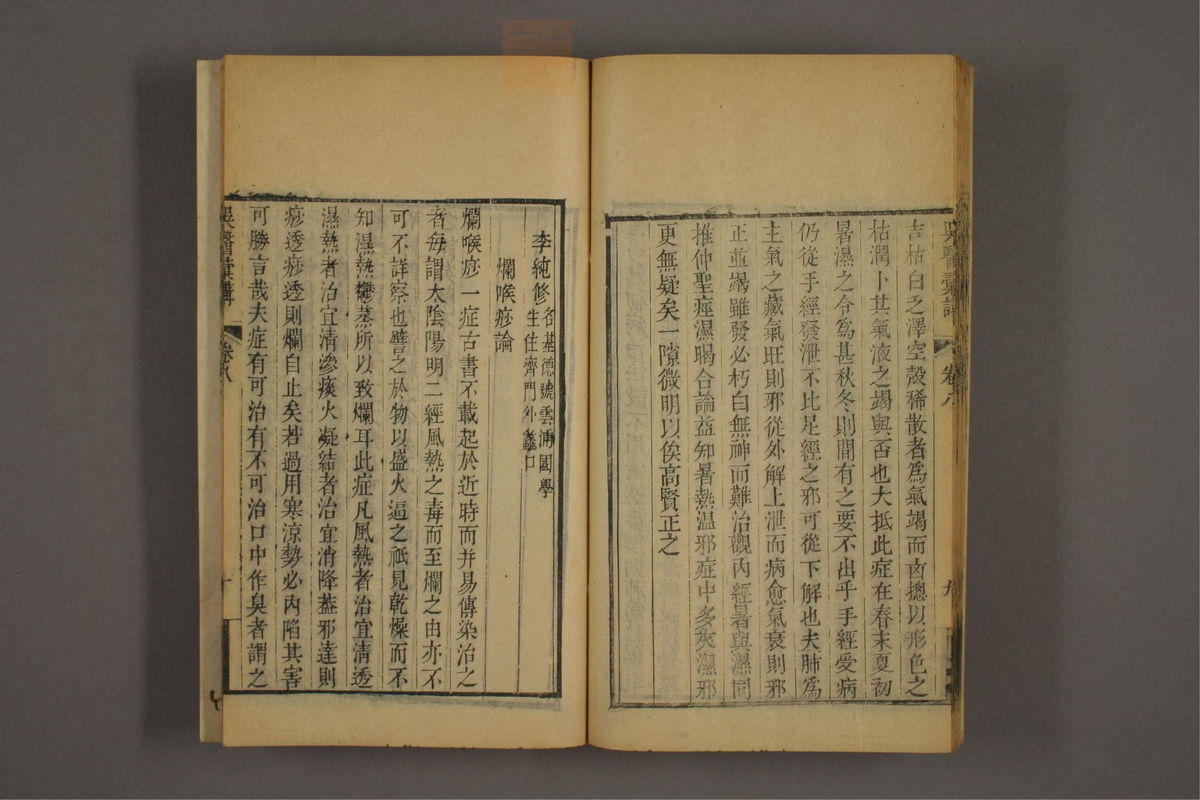 吳醫彙講 卷八 九
吉枯白乏澤空殼稀散者爲氣竭而凶摠以形色之
枯潤卜其氣液之竭與否也大抵此症在春末夏初
暑濕之令爲甚秋冬則間有之要不出乎手經受病
仍從手經發泄不比足經之邪可從下解也夫肺爲
主氣之藏氣旺則邪從外解上泄而病愈氣衰則邪
正並竭雖發必朽白無神而難治觀內經暑與濕同
推仲聖痙濕暍合論益知暑熱温邪症中多夾濕邪
更無疑矣一隙微明以俟高賢正之
李純修 名基德號雲浦國學
生住齊門外蠡口
爛喉痧論
爛喉痧一症古書不載起於近時而并易傳染治之
者每謂太陰陽明二經風熱之毒而至爛之由亦不
可不詳察也譬之於物以盛火逼之祇見乾燥而不
知濕熱鬱蒸所以致爛耳此症凡風熱者治宜清透
濕熱者治宜清滲痰火凝結者治宜消降葢邪達則
痧透痧透則爛自止矣若過用寒涼勢必內陷其害
可勝言哉夫症有可治有不可治口中作臭者謂之
吳醫彙講 卷八 十